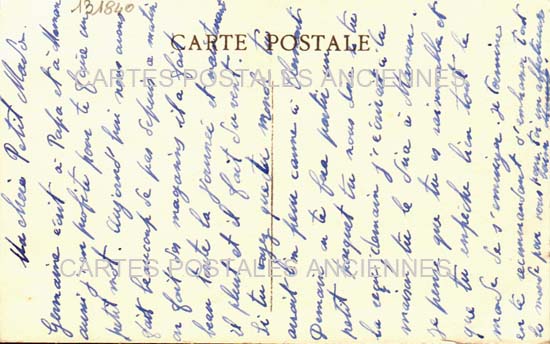 131840
CARTE POSTALE
CARTES POSTALES ANCIENNES
CARTES POSTALES ANCIENNES
Ma chère Petit Mado.
Germaine écrit à Papa et à Maman
aussi j'en profite pour te faire un
petit mot. Aujourd'hui nous avons
fait beaucoup de pas depuis ce matin
on fait les magasins. il a fait
beau toute la journée et maintenant
il pleut et il fait du vent.
Si tu voyais que de monde il y
avait un peu comme à
Demain on te fera partir un
petit paquet tu nous diras si tu
l'as reçu demain j'écrirai à ta
maman tu le diras à Maman.
je pense que tu es raisonnable et
que tu empêche bien tout le
monde de s'ennuyer. je termine
en te recommandant d'embrasser tout
le monde pour nous